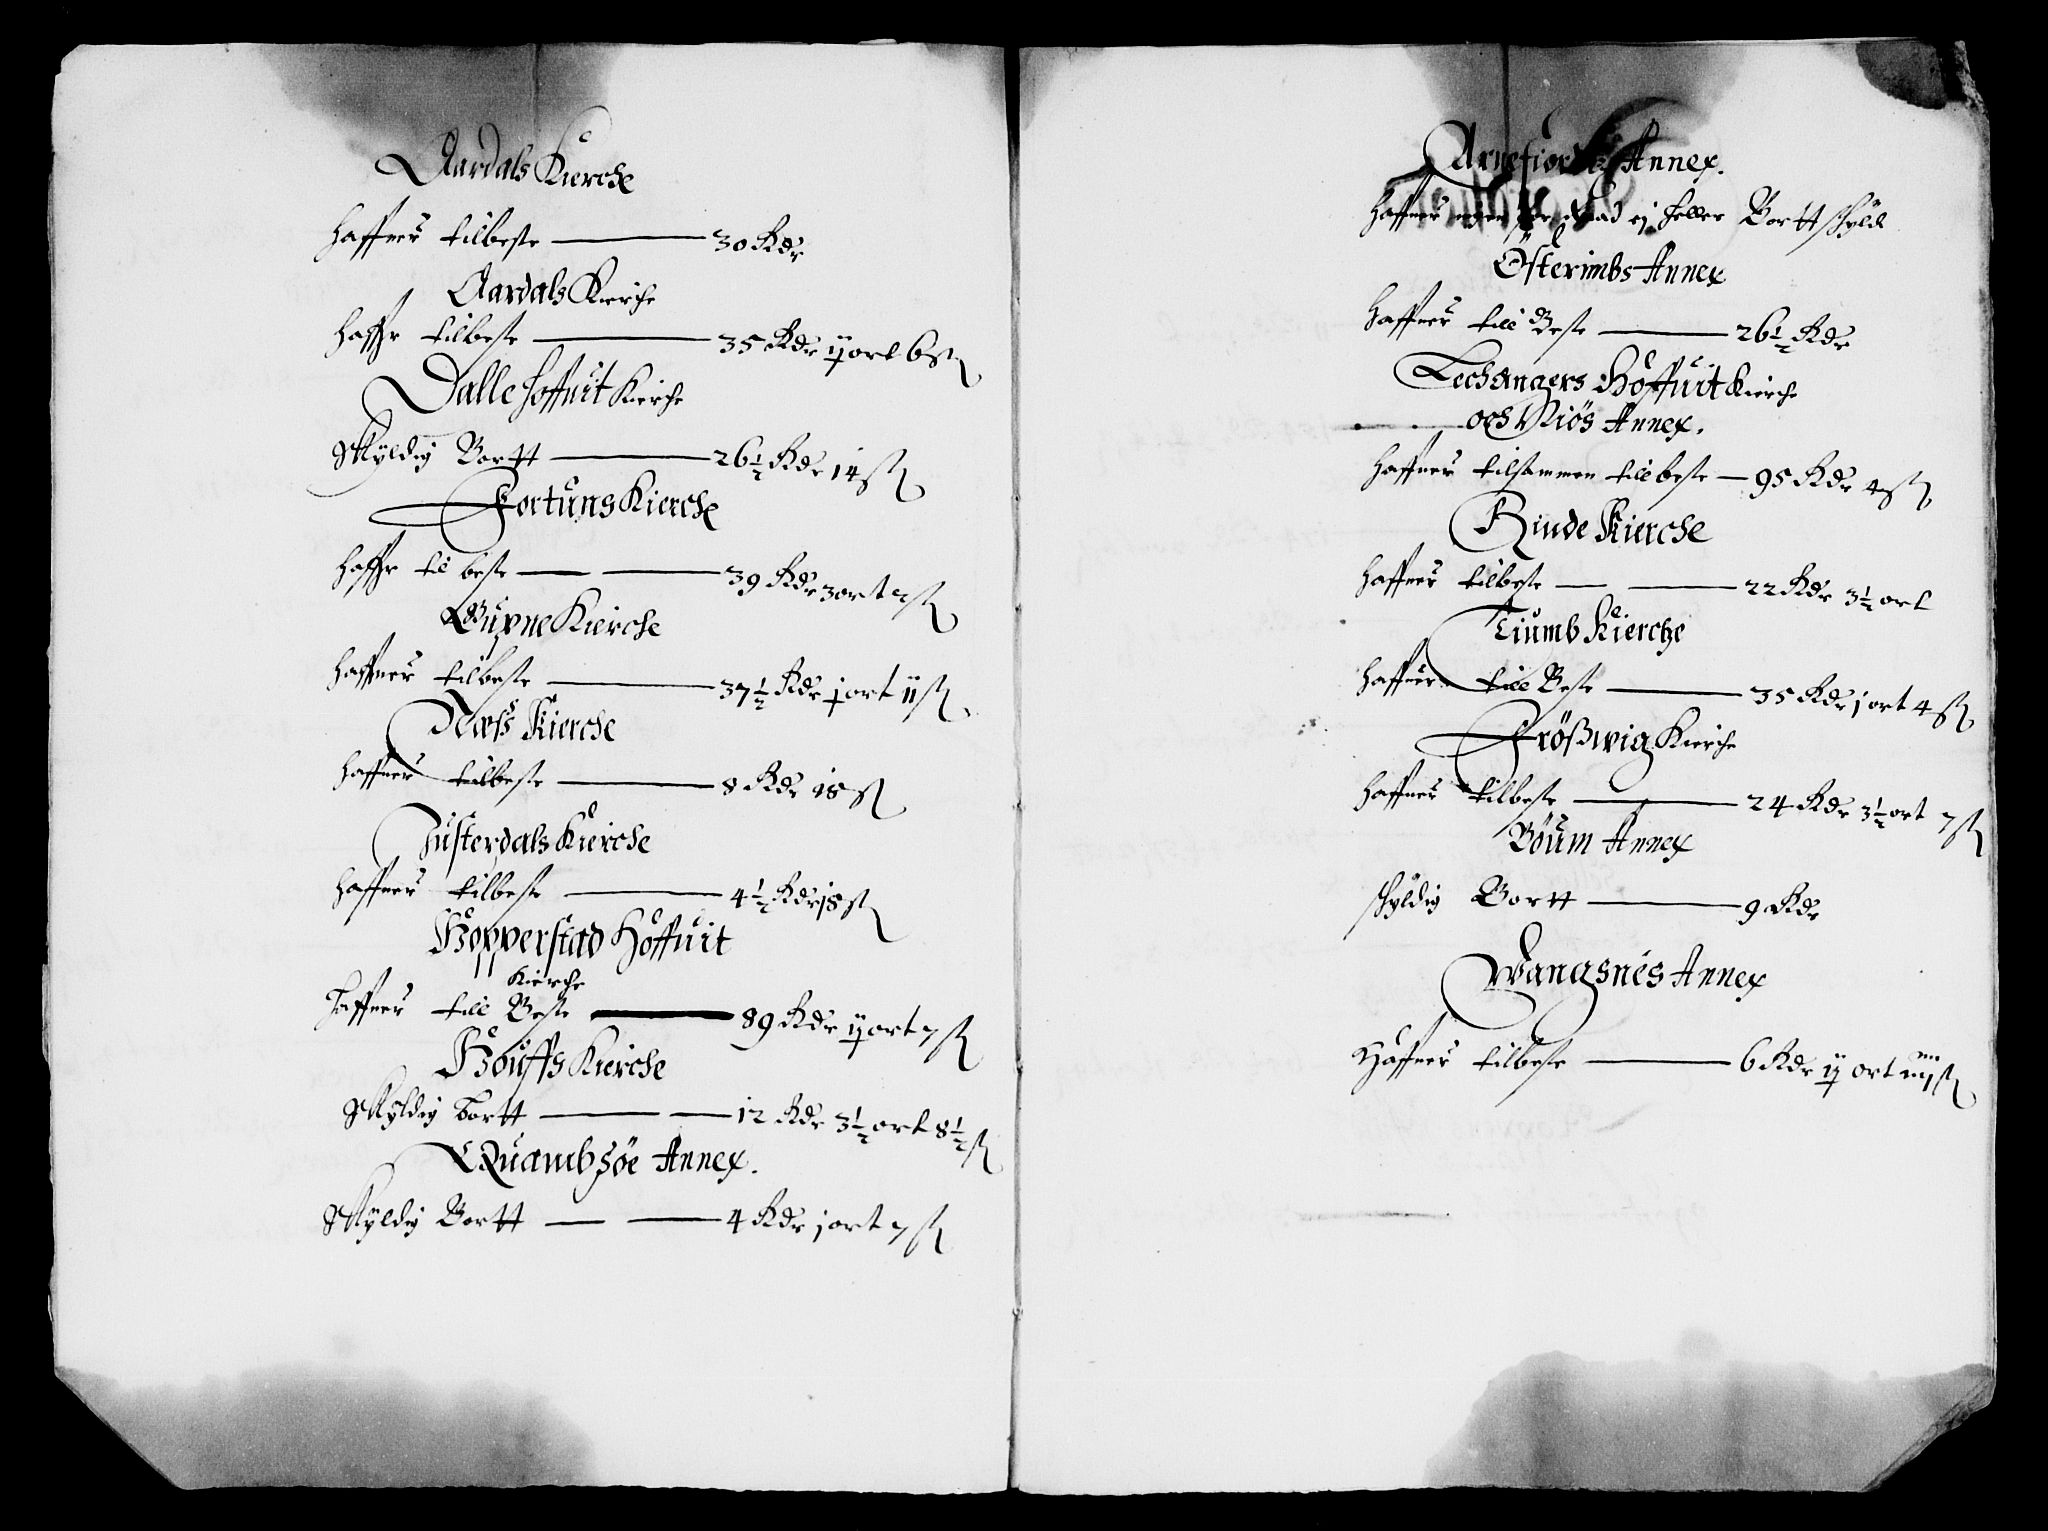 Aardals Kierche
Haffuer tilbeste — 30 Rdr
Aardals Kierche
Haffr tilbeste — 35 Rdr ij ort 6 sk
Dalle Hoffuit Kierche
Skyldig Bortt — 26½ Rdr 14 sk
Fortuns Kierche
Haffr til beste — — 39 Rdr 3 ort 2 sk
Gupne Kierche
Haffuer tilbeste — 37½ Rdr j ort ii sk
Næss Kierche
Haffuer tilbeste — 8 Rdr 18 sk
Justerdals Kierche
Haffuer tilbeste — 4½ Rdr 18 sk
Hopperstad Hoffuit
Kierche
Haffuer till Beste — 89 Rdr ij ort 7 sk
Houffs Kierche
Skyldig Bortt — — 12 Rdr 3½ ort 8½ sk
Quambsöe Annex.
Skyldig Bortt — — 4 Rdr j ort 7 sk
Arnefior Annex.
Haffuer ej heller Bortt skyld
Österimbs Annex
Haffuer till Beste — 26½ Rdr
Lechangers Hoffuit Kierche
och Niös Annex.
Haffuer tilsammen till beste — 95 Rdr 4 sk
Rinde Kierche
Haffuer tilbeste — — 22 Rdr 3½ ort
Tiumb Kierche
Haffuer till Beste — 35 Rdr j ort 4 sk
Frößwig Kierche
Haffuer tilbeste — 24 Rdr 3½ ort 7 sk
Böum Annex
skyldig Bortt — 9 Rdr
Wangsnes Annex
Haffuer tilbeste — 6 Rdr ij ort sk